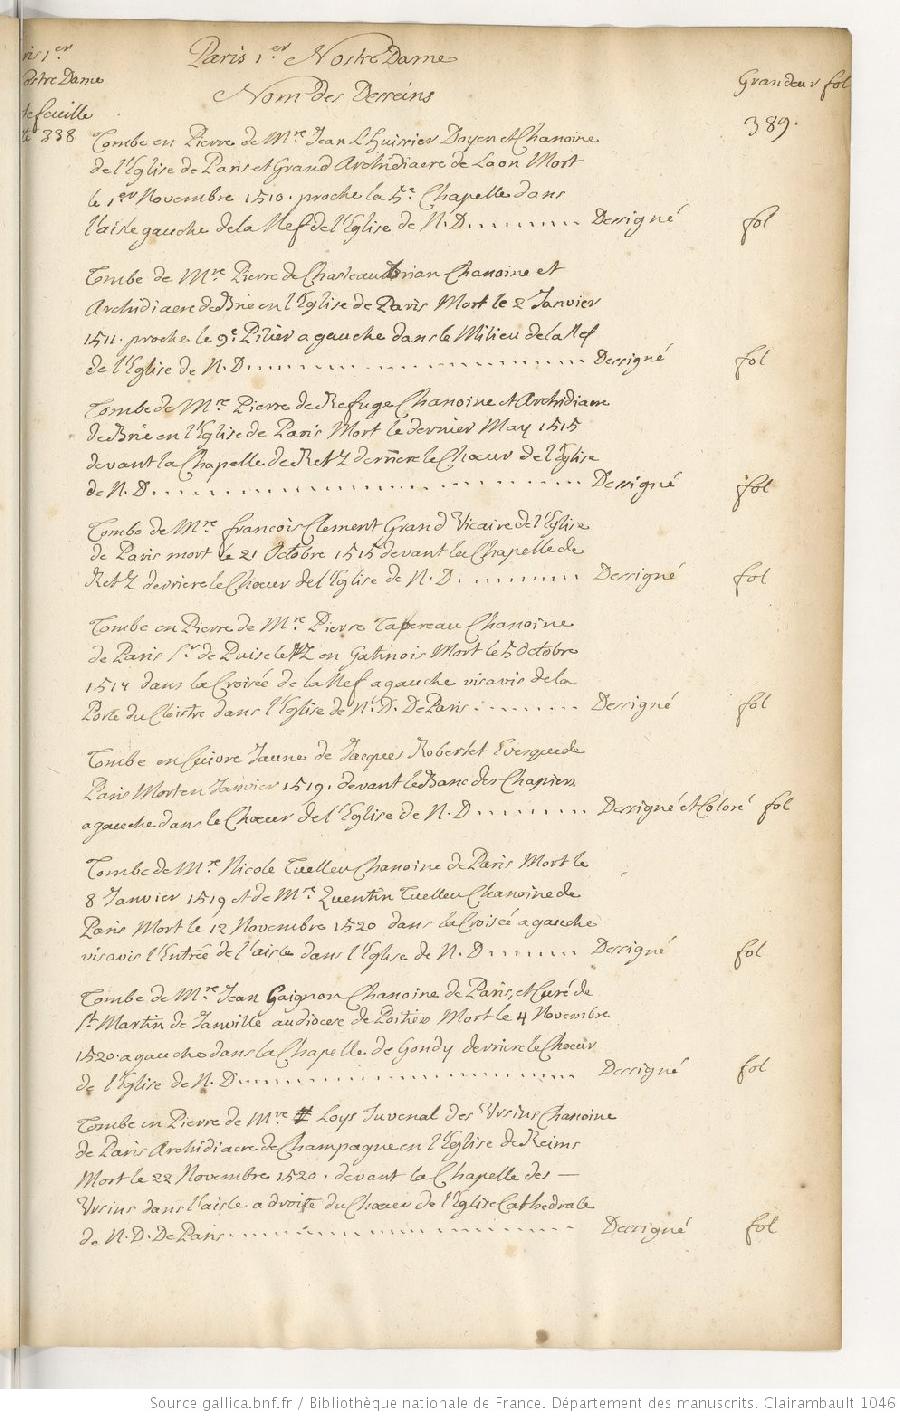 Paris 1.er Nostre Dame
Nom des Desseins
Grandeur fol
389.
ris 1.er
ostre Dame
tefeuille
338
Tombe en Pierre de M.re Jean L'huirier Doyen et Chanoine
de l'Eglise de Paris et Grand Archidiacre de Laon Mort
le 1.er Novembre 1510. proche la 5.e Chapelle dans
l'aisle gauche de la Nef de l'Eglise de N. D. ......... Dessigné fol
Tombe de M.re Pierre de Chasteaubrian Chanoine et
Archidiacre de Brie en l'Eglise de Paris Mort le 2 Janvier
1511. proche le 9.e Pilier a gauche dans le Milieu de la Nef
de l'Eglise de N. D. ......... Dessigné fol
Tombe de M.re Pierre de Refuge Chanoine et Archidiacre
de Brie en l'Eglise de Paris Mort le dernier May 1515
devant la Chapelle de RetZ derriere le Chœur de l'Eglise
de N. D. ......... Dessigné fol
Tombe de M.re francois Clement Grand Vicaire de l'Eglise
de Paris mort le 21 Octobre 1515 devant la Chapelle de
RetZ derriere le Chœur de l'Eglise de N. D. ......... Dessigné fol
Tombe en Pierre de M.re Pierre Tapereau Chanoine
de Paris S.r de en Gatinois Mort le 5 Octobre
dans la Croisée de la Nef a gauche visavis de la
Porte du Cloistre dans l'Eglise de N. D. De Paris ......... Dessigné fol
Tombe en Cuivre Jaune de Jacques Robertet Evesque de
Paris Mort en Janvier 1519. devant le Banc des Chapiers
a gauche dans le Chœur de l'Eglise de N. D. ......... Dessigné et Coloré fol
Tombe de M.re Nicole Tuelleu Chanoine de Paris Mort le
8 Janvier 1519 et de M.re Quentin Tuelleu Chanoine de
Paris Mort le 12 Novembre 1520 dans la Croisée a gauche
visavis l'Entrée de l'aisle dans l'Eglise de N. D. ......... Dessigné fol
Tombe de M.re Jean Gaignon Chanoine de Paris, et Curé de
S.t Martin de Janville au diocese de Poitiers Mort le 4 Novembre
1520. a gauche dans la Chapelle de Gondy derriere le Chœur
de l'Eglise de N. D. ......... Dessigné fol
Tombe en Pierre de M.re Loys Juvenal des Ursins Chanoine
de Paris Archidiacre de Champagne en l'Eglise de Reims
Mort le 22 Novembre 1520. devant la Chapelle des —
Ursins dans l'aisle a droite du Chœur de l'Eglise Cathedrale
de N. D. De Paris ......... Dessigné fol
Source gallica.bnf.fr / Bibliothèque nationale de France. Département des manuscrits. Clairambault 1046